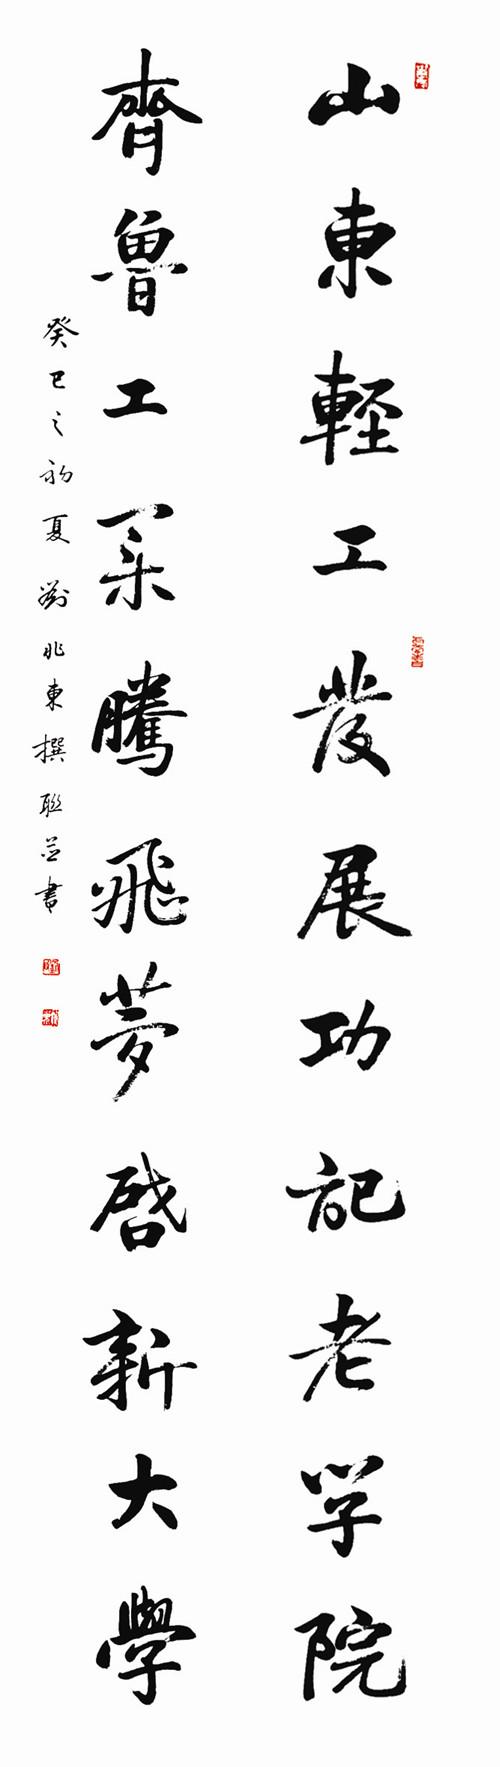 山東輕工發展功記老学院
齊魯工業騰飛夢啓新大學
癸巳之初夏劉兆東撰聯並書